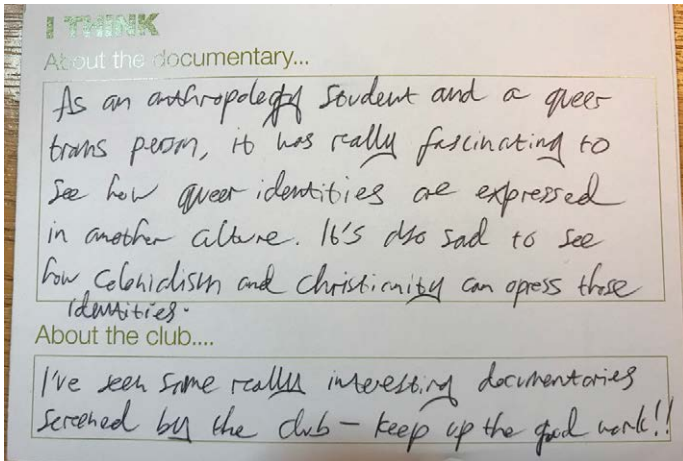 I THINK
About the documentary...
As an anthropology student and a queer
trans person, it was really fascinating to
see how queer identities are expressed
in another culture. It's also sad to see
how colonialism and christianity can opress those
identities.
About the club....
I've seen some really interesting documentaries
screened by the club - keep up the good work!!